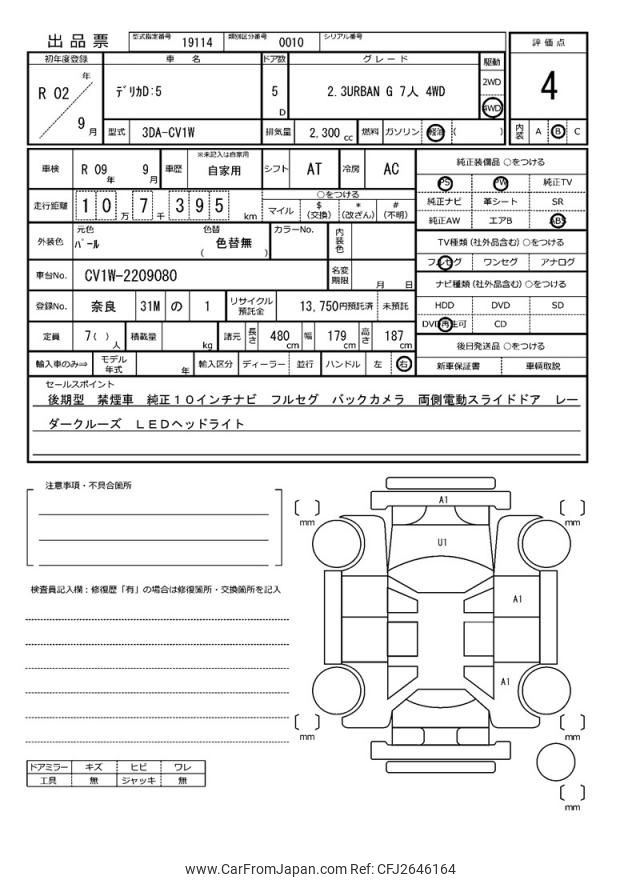 出品票 型式指定番号 19114 類別区分番号 0010 シリアル番号
評価点
初年度登録 車名 ドア数 グレード 駆動
R 02 年 9 月 デリカD:5 5 D 2.3URBAN G 7人 4WD 2WD 4WD
4
型式 3DA-CV1W 排気量 2,300 cc 燃料 ガソリン 軽油 ( )
内装 A B C
車検 R 09 年 9 月 車歴 ※未記入は自家用 自家用 シフト AT 冷房 AC
純正装備品 ○をつける
PS PW 純正TV
走行距離 1 0 万 7 千 3 9 5 km
○をつける
マイル $(交換) *(改ざん) #(不明)
純正ナビ 革シート SR
純正AW エアB ABS
外装色 元色 パール 色替 色替無 ( ) カラーNo. 内装色
TV種類(社外品含む)○をつける
フルセグ ワンセグ アナログ
車台No. CV1W-2209080 名変期限 月 日
ナビ種類(社外品含む)○をつける
登録No. 奈良 31M の 1 リサイクル預託金 13,750円預託済 未預託
HDD DVD SD
DVD再生可 CD
定員 7( ) 人 積載量 kg 諸元 長さ 480 cm 幅 179 cm 高さ 187 cm
後日発送品 ○をつける
輸入車のみ⇒ モデル年式 年 輸入区分 ディーラー 並行 ハンドル 左 右
新車保証書 車輌取説
セールスポイント
後期型 禁煙車 純正10インチナビ フルセグ バックカメラ 両側電動スライドドア レー
ダークルーズ LEDヘッドライト
注意事項・不具合箇所
検査員記入欄:修復歴「有」の場合は修復箇所・交換箇所を記入
A1
mm mm
U1
A1
A1
mm mm
mm
ドアミラー キズ ヒビ ワレ
工具 無 ジャッキ 無
www.CarFromJapan.com Ref: CFJ2646164